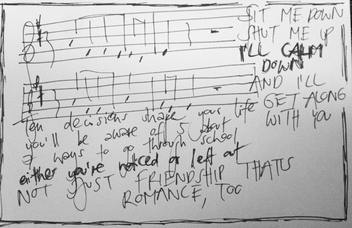 SIT ME DOWN
SHUT ME UP
I'LL CALM
DOWN
AND I'LL
GET ALONG
WITH YOU
Ten decisions shape your life
you'll be aware of 5 about
7 ways to go through school
either you're noticed or left out
NOT JUST FRIENDSHIP THATS
ROMANCE, TOO